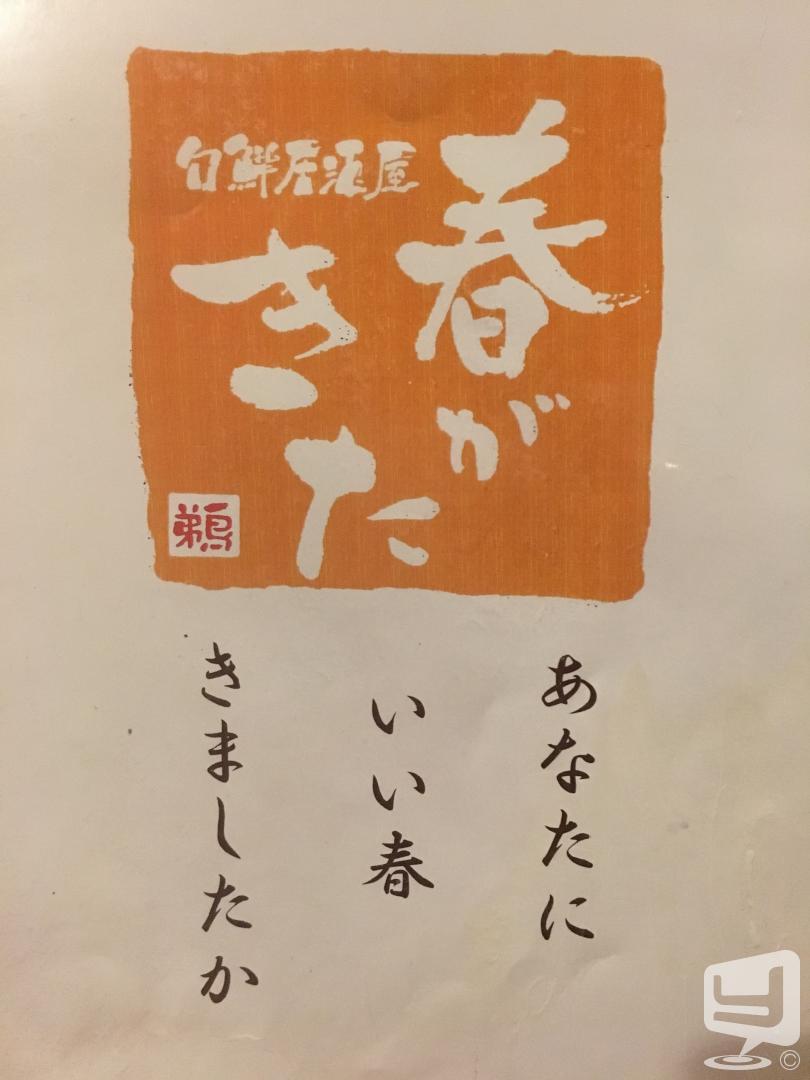 旬鮮居酒屋
春が
きた
鵜
あなたに
いい春
きましたか
©